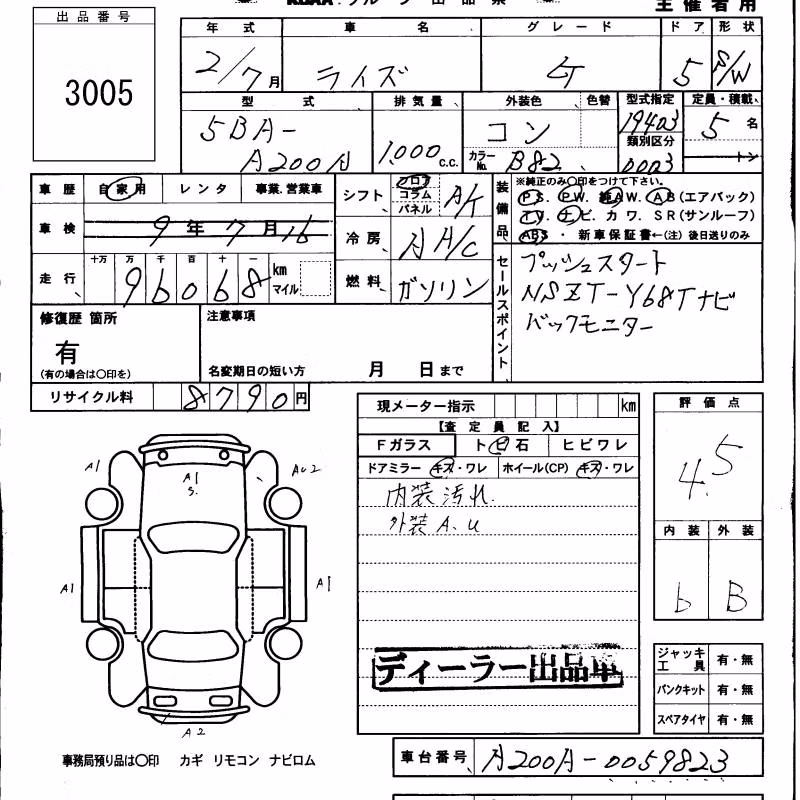 主催者用
出品番号
3005
年式 車名 グレード ドア 形状
2/7月 ライズ 5 S/W
型式 排気量 外装色 色替 型式指定 定員・積載
5BA-
A200A 1,000 c.c. コン カラーNo. B82 19403 類別区分 0003 5名 トン
車歴 自家用 レンタ 事業.営業車
車検 9年7月16
走行 十万 万 千 百 十 一 96068 km マイル
シフト フロア コラム パネル A/T
冷房 A A/C
燃料 ガソリン
装備品 ※純正のみ○印をつけて下さい。
PS. PW. 純AW. AB(エアバック)
TV. ナビ. カワ. SR(サンルーフ)
ABS ・ 新車保証書←(注) 後日送りのみ
セールスポイント
プッシュスタート
NSZT-Y68Tナビ
バックモニター
修復歴 箇所
有
(有の場合は○印を)
注意事項
名変期日の短い方 月 日まで
リサイクル料 8790円
現メーター指示 km
【査定員記入】
Fガラス トビ石 ヒビワレ
ドアミラー キズ・ワレ ホイール(CP) キズ・ワレ
内装汚れ.
外装A.U
評価点
4.5
内装 外装
b B
A1 A1 S. AU2
A1 A1
A2
ディーラー出品車
ジャッキ工具 有・無
パンクキット 有・無
スペアタイヤ 有・無
事務局預り品は○印 カギ リモコン ナビロム
車台番号 A200A-0059823